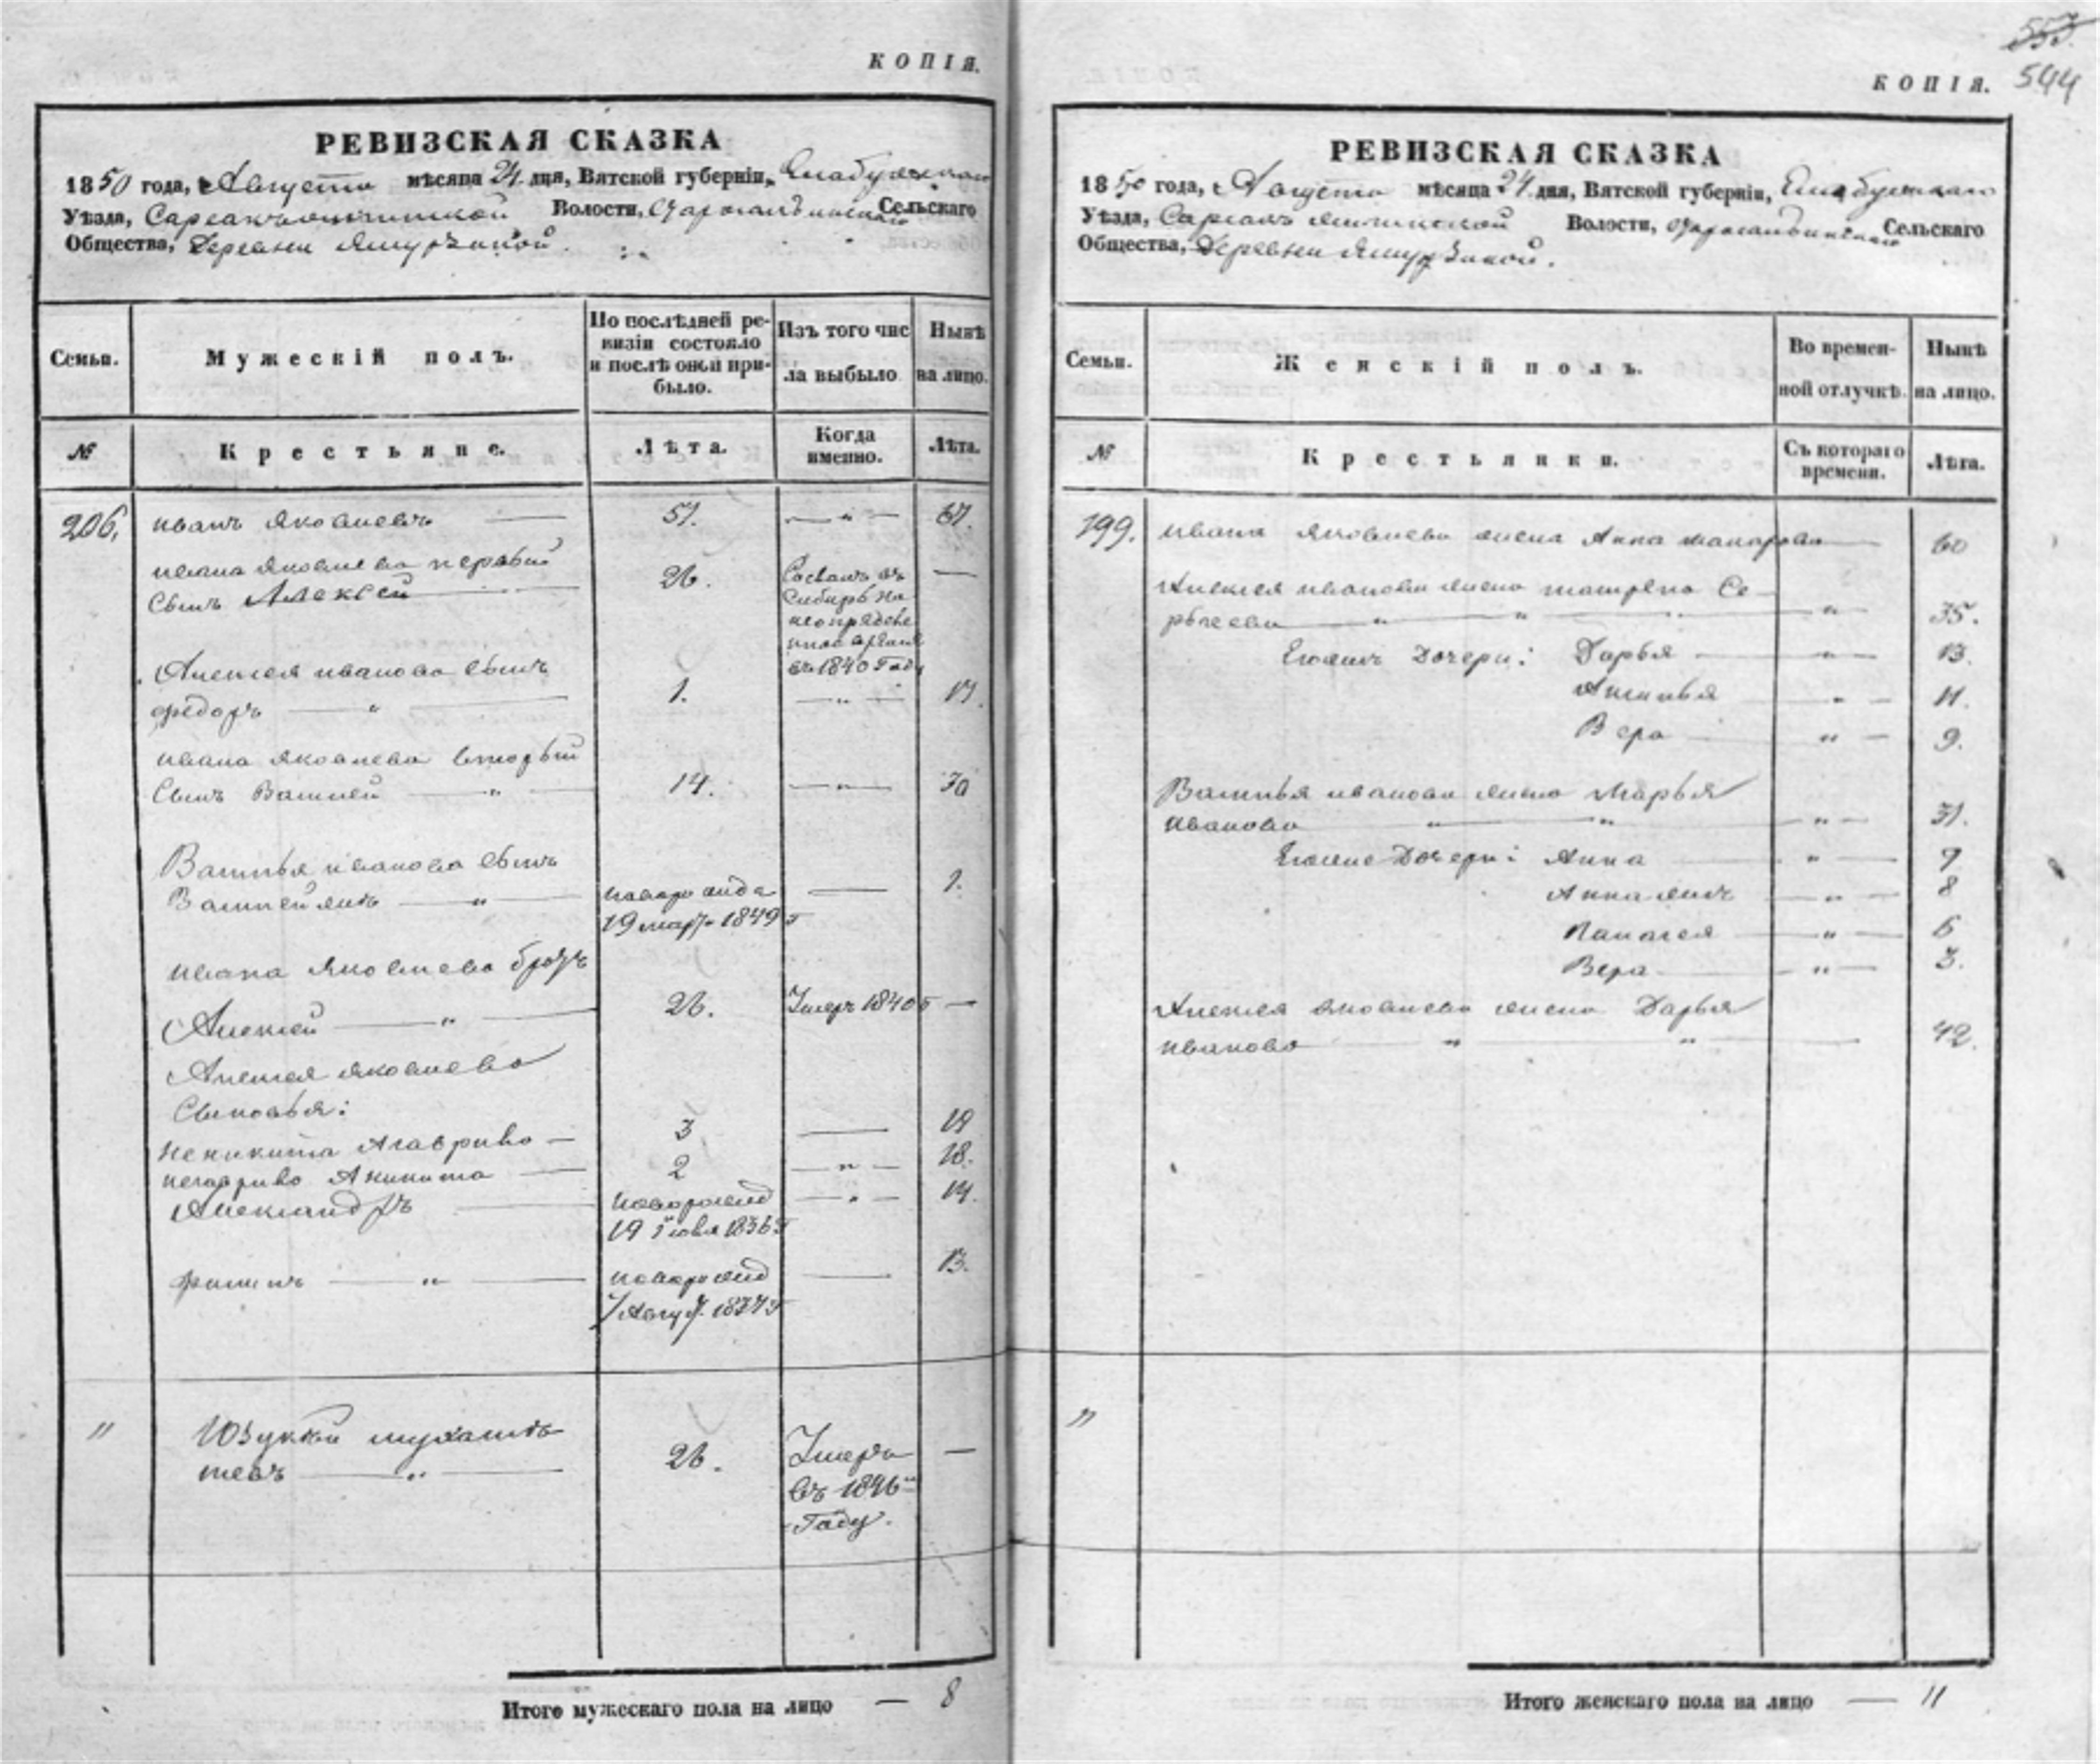 553.
544
КОПІЯ.
РЕВИЗСКАЯ СКАЗКА
1850 года, Августа мѣсяца 24 дня, Вятской губерніи, Елабужскаго
Уѣзда, Волости, Сельскаго
Общества, Деревни
Семьи.
Мужескій полъ.
По послѣдней ре-
визіи состояло
и послѣ оной при-
было.
Изъ того чис
ла выбыло
Нынѣ
на лицо.
№
Крестьяне.
Лѣта.
Когда
именно.
Лѣта.
206. иванъ Яковлевъ — 51. — " — 67.
ивана Яковлева первый
сынъ Алексей — 26. —
Сосланъ въ
Сибирь на
неопределе
нное время
въ 1840 Году
Алексея иванова сынъ
федоръ — " — 1. — " — 17.
ивана Яковлева вторый
сынъ Василей — " — 14. — " — 30
Василья иванова сынъ
Василей — " — новорожде — 1.
19 мар. 1849 г
ивана Яковлева братъ
Алексей — " — 26. Умеръ 1840 г —
Алексея яковлева
Сыновья:
неникита Агаврило — 3 — 19
негаврило Аникита — 2 — " — 18.
Александръ — новорожд — " — 14.
19 1836 г
филипъ — " — новорожд — 13.
7 Авгу. 1837 г
" Юзукай
тевъ — " — 26. Умеръ —
въ 1846 м
Году.
Итого мужескаго пола на лицо — 8
КОПІЯ.
РЕВИЗСКАЯ СКАЗКА
1850 года, Августа мѣсяца 24 дня, Вятской губерніи, Елабужскаго
Уѣзда, Волости, Сельскаго
Общества, Деревни
Семьи.
Женскій полъ.
Во времен-
ной отлучкѣ.
Нынѣ
на лицо.
№
Крестьянки.
Съ котораго
времени.
Лѣта.
199. ивана Яковлева жена Анна макарова — 60
Алексея иванова жена матрена Се-
ргеева — " — " — " — 35.
Дочери: Дарья — " — 13.
— " — 11.
Вера — " — 9.
Василья иванова жена Марья
иванова — " — " — " — 31.
Дочери: Анна — " — 9
Анна — " — 8
Палагея — " — 6
Вера — " — 3.
Алексея яковлева жена Дарья
иванова — " — " — 42.
"
Итого женскаго пола на лицо — 11